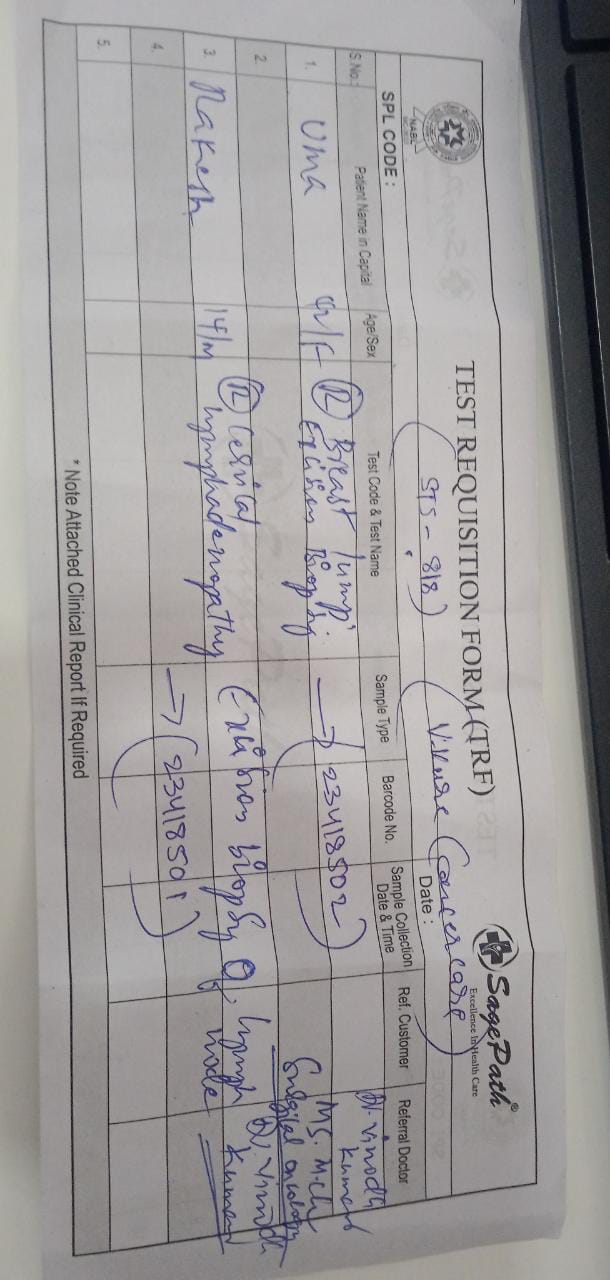 NABL
TEST REQUISITION FORM (TRF)
SagePath®
Excellence In Health Care
SPL CODE :
STS - 818)
Cancer care
Date :
S.No.: Patient Name in Capital Age/Sex Test Code & Test Name Sample Type Barcode No. Sample Collection Date & Time Ref. Customer Referral Doctor
1. Uma 42/F (R) Breast lump. → 23418502) Dr. Vinodh Kumar
Excision Biopsy MS. M.ch
Surgical oncology
2.
3. Rakesh 14/M (R) Cervical lymphadenopathy Excision biopsy of lymph node Dr. Vinodh Kumar
4. → (23418501)
5.
* Note Attached Clinical Report If Required